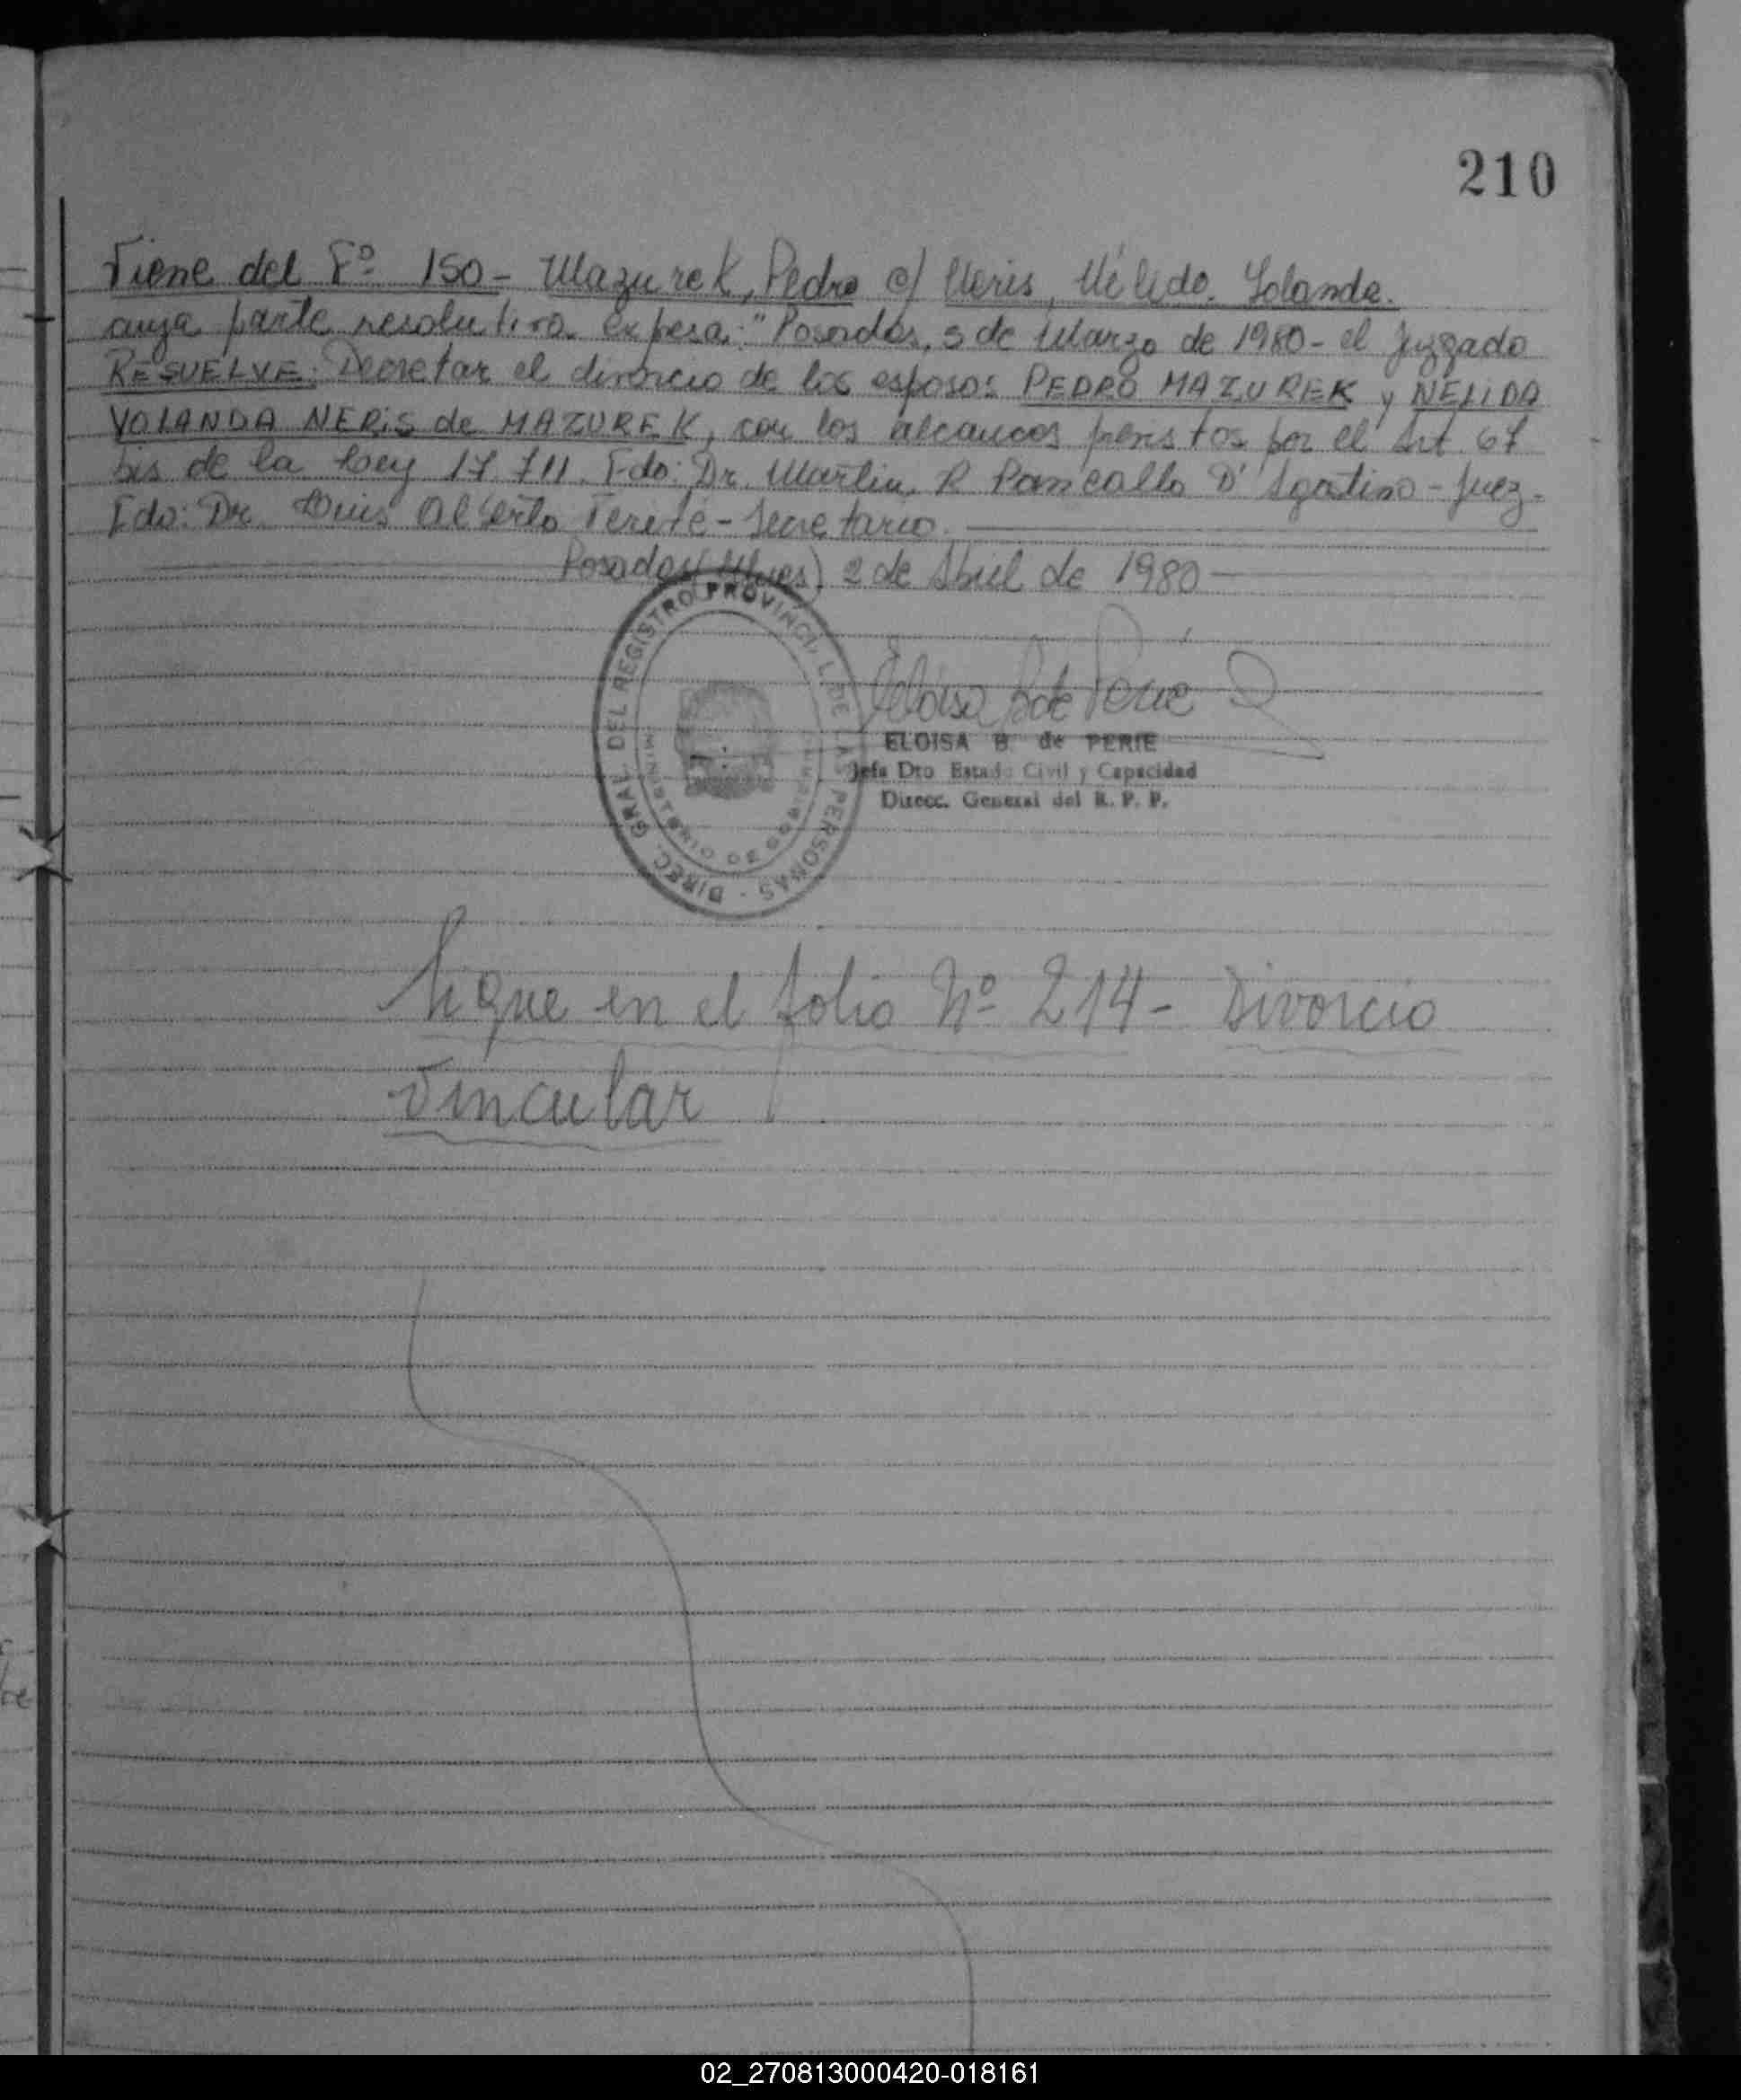 210
Viene del Fº 150 - Mazurek, Pedro c/ Neris, Nélida Yolanda.
cuya parte resolutiva expresa: "Posadas, 5 de Marzo de 1980 - el Juzgado
RESUELVE: Decretar el divorcio de los esposos PEDRO MAZUREK y NELIDA
YOLANDA NERIS de MAZUREK, con los alcances previstos por el Art. 67
bis de la Ley 17.711. Fdo: Dr. Martin R D'Agostino - Juez.
Fdo: Dr. Luis Alberto - Secretario.
Posadas (Mnes) 2 de Abril de 1980
DIREC. GRAL. DEL REGISTRO PROVINCIAL DE LAS PERSONAS
MINISTERIO DE GOBIERNO
ELOISA B. de PERIE
Jefa Dto Estado Civil y Capacidad
Direcc. General del R. P. P.
Sigue en el folio Nº 214 - Divorcio
Vincular
02_270813000420-018161